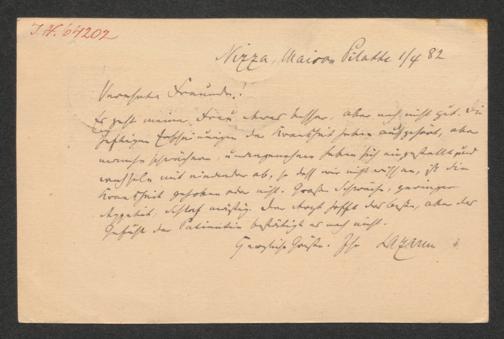 I.N. 64202
Nizza, Maison Pilatte 1/4 82
Verehrte Freunde!
Es geht meiner Frau etwas besser, aber noch nicht gut. Die
heftigen Erscheinungen der Krankheit haben aufgehört, aber
schwächere, unangenehme haben sich eingestellt und
wechseln mit einander ab, so daß wir nicht wissen, ist die
Krankheit gehoben oder nicht. Große Schwäche, geringer
Appetit, Schlaf mäßig. Der Arzt hofft das beste, aber das
Gefühl der Patientin bestätigt es noch nicht.
Herzliche Grüße. Ihr